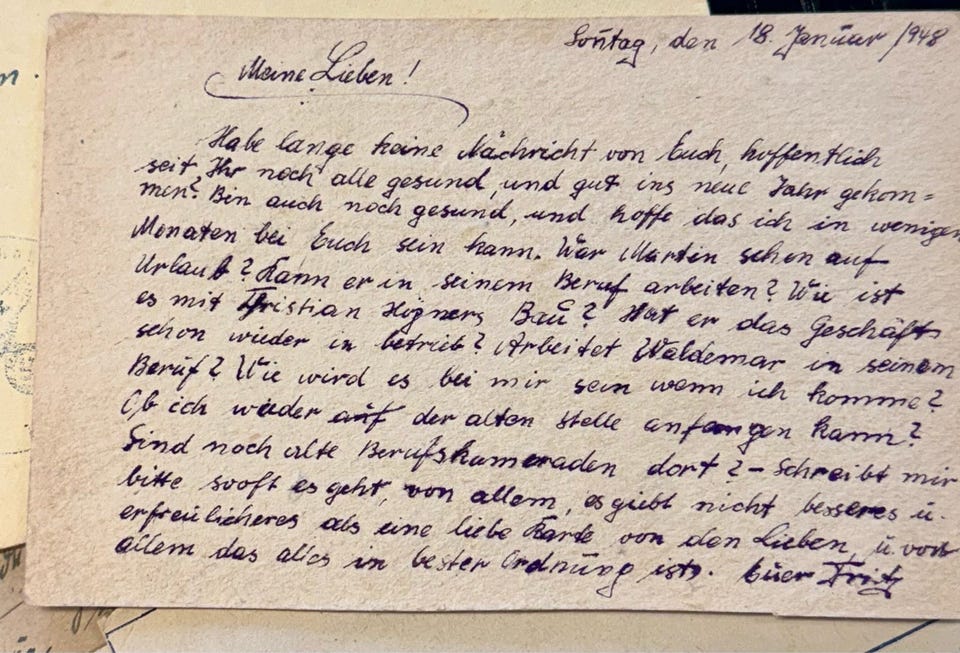 Sontag, den 18. Januar 1948
Meine Lieben!
Habe lange keine Nachricht von Euch, hoffentlich
seit Ihr noch alle gesund, und gut ins neue Jahr gekom=
men? Bin auch noch gesund, und hoffe das ich in wenigen
Monaten bei Euch sein kann. War Martin schon auf
Urlaub? Kann er in seinem Beruf arbeiten? Wie ist
es mit Christian Högners Bau? Hat er das Geschäft
schon wieder in betrieb? Arbeitet Waldemar in seinem
Beruf? Wie wird es bei mir sein wenn ich komme?
Ob ich wieder auf der alten stelle anfangen kann?
Sind noch alte Berufskameraden dort? – Schreibt mir
bitte sooft es geht, von allem, es giebt nicht besseres u.
erfreulicheres als eine liebe Karte von den Lieben, u. von
allem das alles in bester Ordnung ist. Euer Fritz